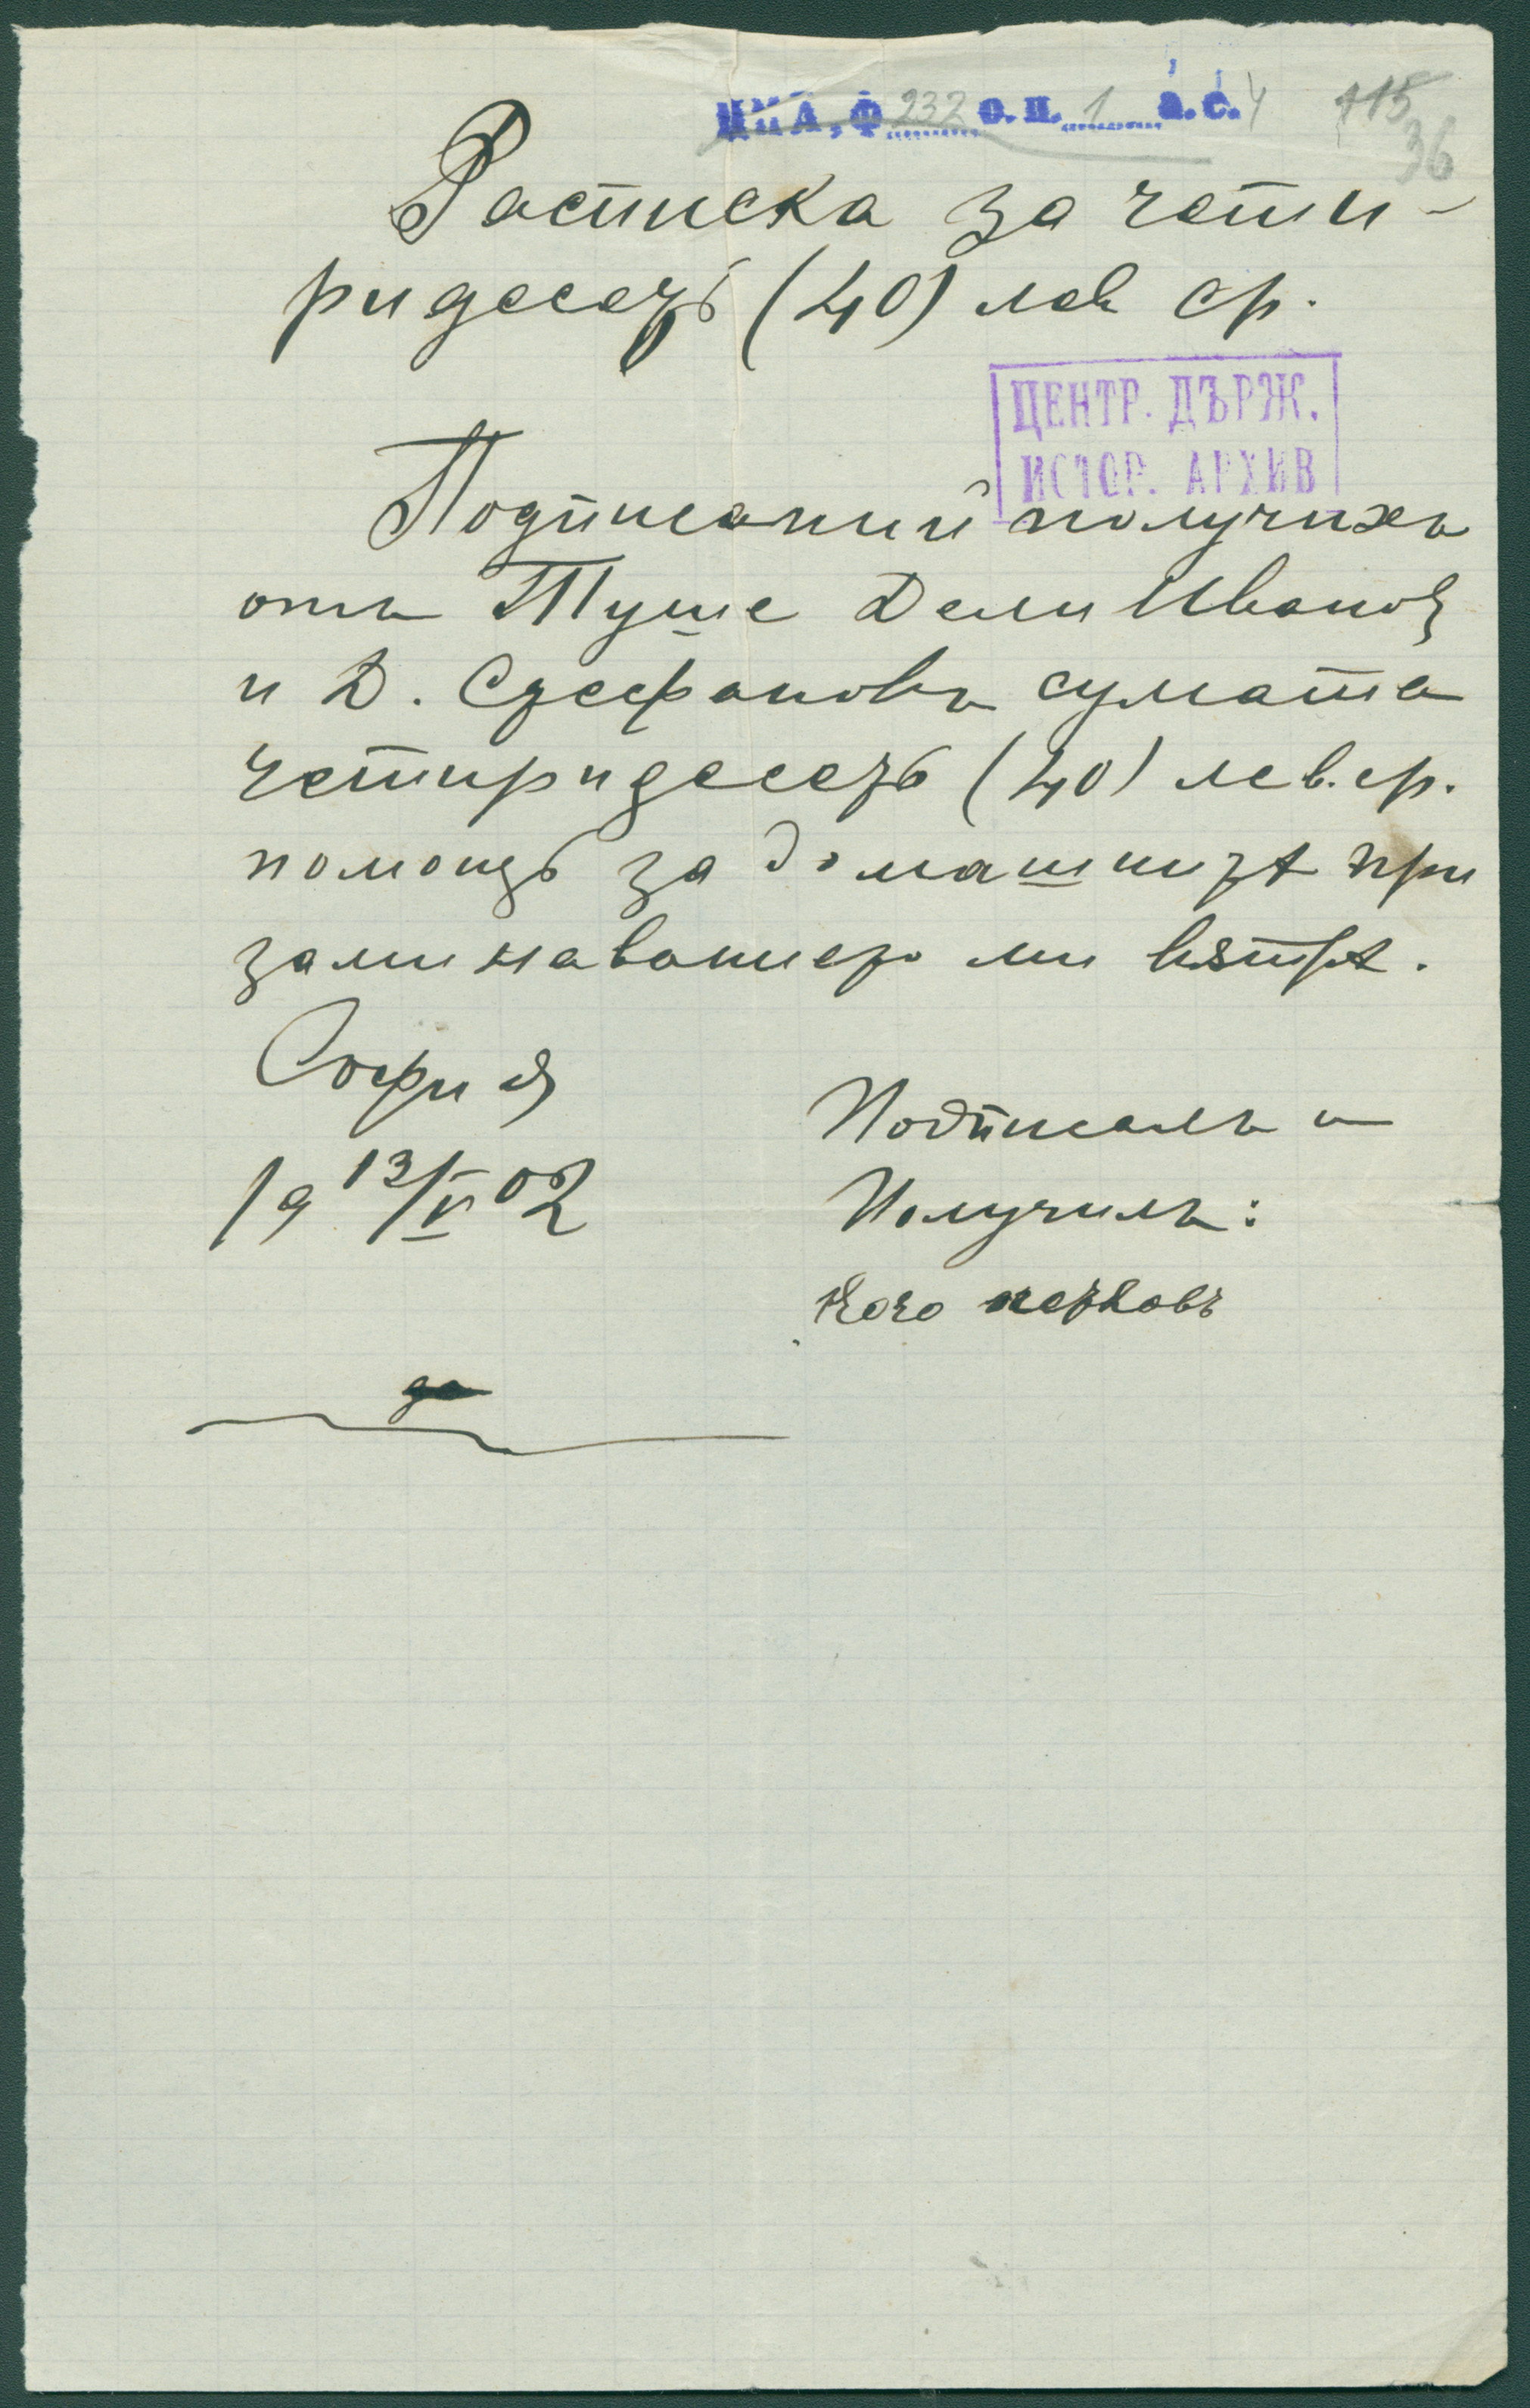 МИА, Ф 232 о. п. 1 а. е. 4
115
36
Расписка за чети-
ридесеть (40) лев ср.
ЦЕНТР. ДЪРЖ.
ИСТОР. АРХИВ
Подписаний получихъ
отъ Туше Дели Иванов
и Д. Стефановъ сумата
четиридесеть (40) лев. ср.
помощь за домашнитѣ при
заминаванието ми вѫтрѣ.
София
19 13/V 02
Подписалъ и
Получилъ:
Кочо петковъ